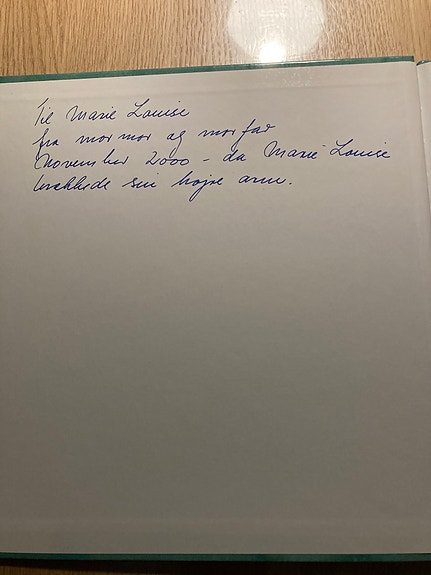 Til Marie Louise
fra mormor og morfar
November 2000 - da Marie Louise
brækkede sin højre arm.